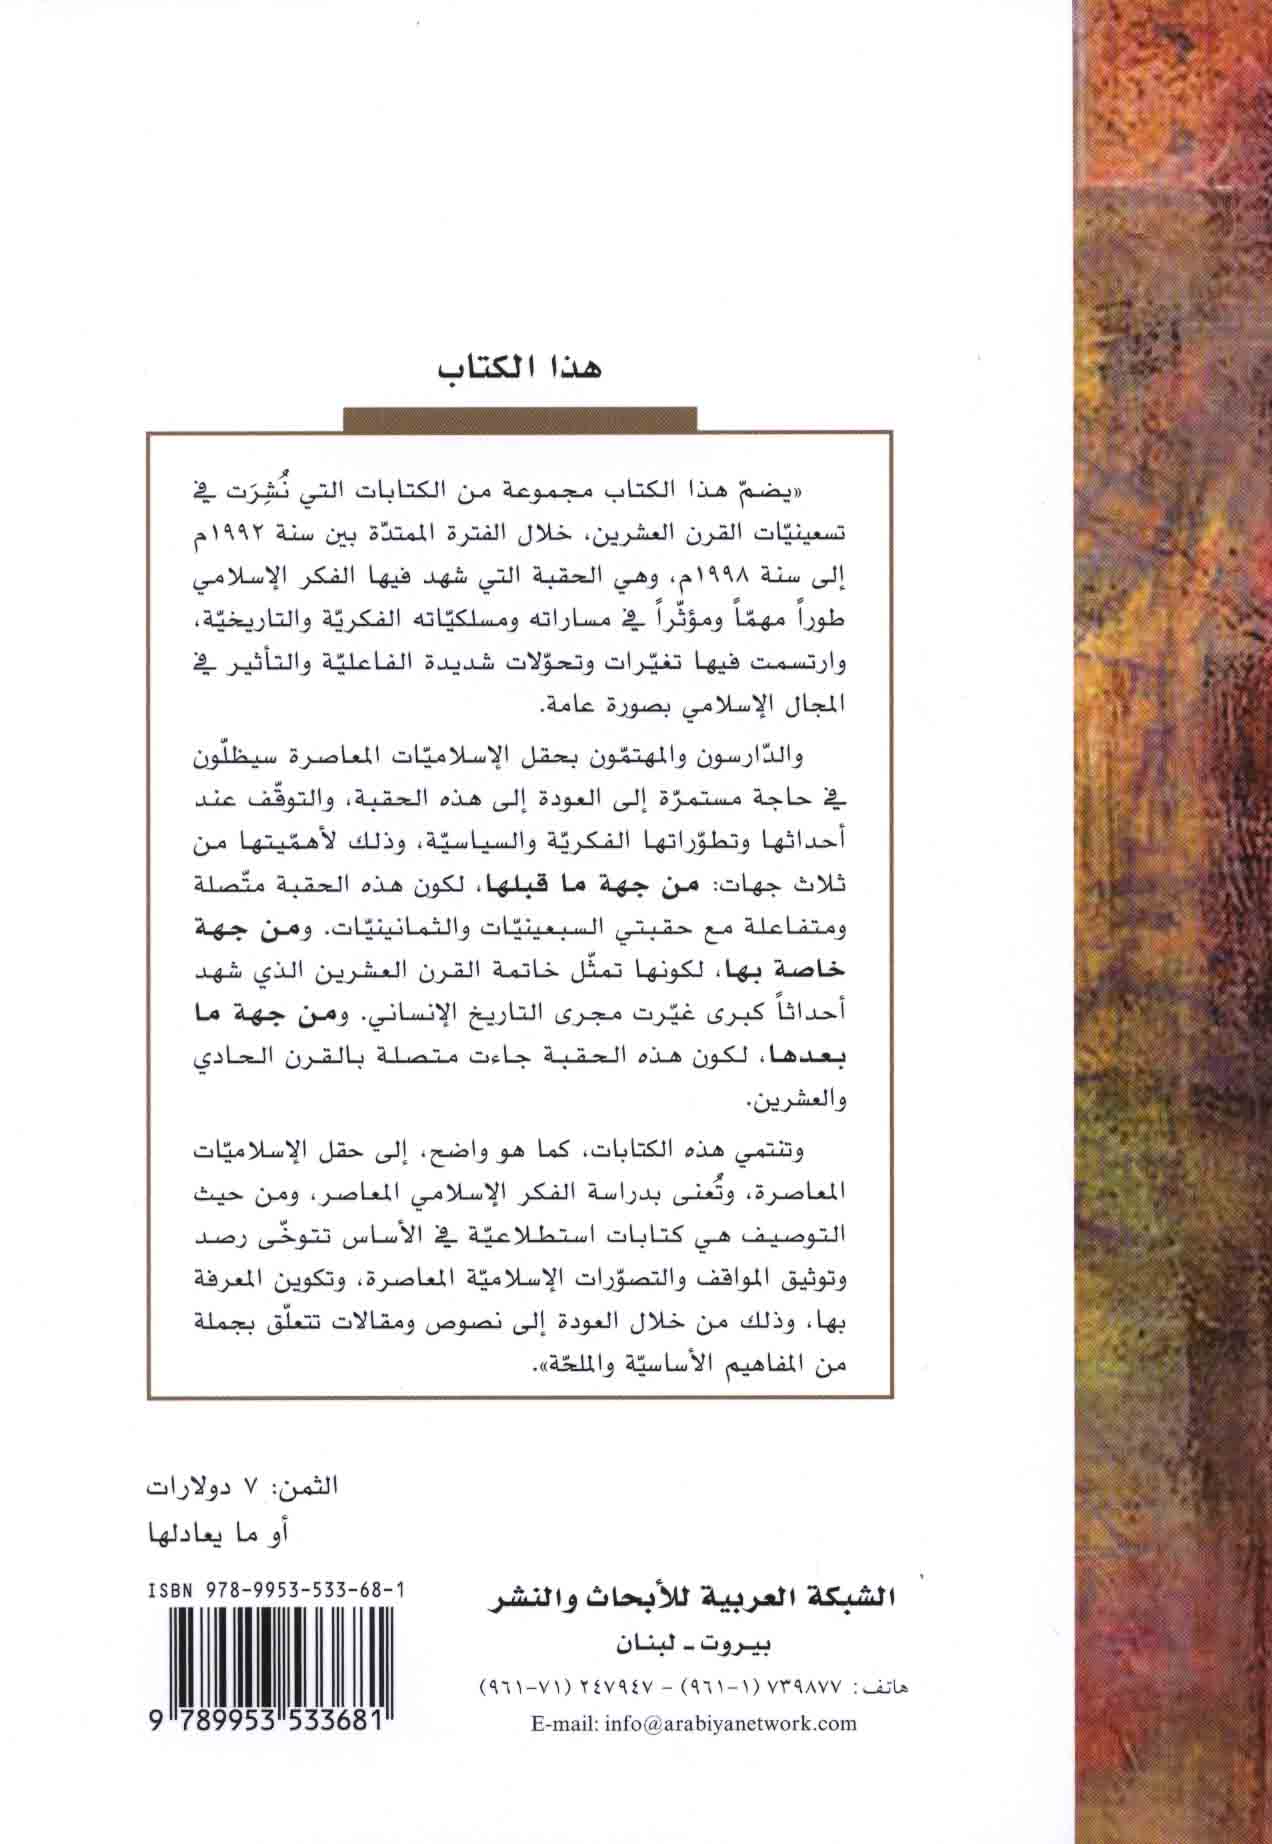 هذا الكتاب
«يضمّ هذا الكتاب مجموعة من الكتابات التي نُشِرَت في
تسعينيّات القرن العشرين، خلال الفترة الممتدّة بين سنة ١٩٩٢م
إلى سنة ١٩٩٨م، وهي الحقبة التي شهد فيها الفكر الإسلامي
طوراً مهمّاً ومؤثّراً في مساراته ومسلكيّاته الفكريّة والتاريخيّة،
وارتسمت فيها تغيّرات وتحوّلات شديدة الفاعليّة والتأثير في
المجال الإسلامي بصورة عامة.
والدّارسون والمهتمّون بحقل الإسلاميّات المعاصرة سيظلّون
في حاجة مستمرّة إلى العودة إلى هذه الحقبة، والتوقّف عند
أحداثها وتطوّراتها الفكريّة والسياسيّة، وذلك لأهمّيتها من
ثلاث جهات: من جهة ما قبلها، لكون هذه الحقبة متّصلة
ومتفاعلة مع حقبتي السبعينيّات والثمانينيّات. ومن جهة
خاصة بها، لكونها تمثّل خاتمة القرن العشرين الذي شهد
أحداثاً كبرى غيّرت مجرى التاريخ الإنساني. ومن جهة ما
بعدها، لكون هذه الحقبة جاءت متصلة بالقرن الحادي
والعشرين.
وتنتمي هذه الكتابات، كما هو واضح، إلى حقل الإسلاميّات
المعاصرة، وتُعنى بدراسة الفكر الإسلامي المعاصر، ومن حيث
التوصيف هي كتابات استطلاعيّة في الأساس تتوخّى رصد
وتوثيق المواقف والتصوّرات الإسلاميّة المعاصرة، وتكوين المعرفة
بها، وذلك من خلال العودة إلى نصوص ومقالات تتعلّق بجملة
من المفاهيم الأساسيّة والملحّة».
الثمن: ٧ دولارات
أو ما يعادلها
ISBN 978-9953-533-68-1
9 789953 533681
الشبكة العربية للأبحاث والنشر
بيروت - لبنان
هاتف: ٧٣٩٨٧٧ (١-٩٦١) - ٢٤٧٩٤٧ (٧١-٩٦١)
E-mail: info@arabiyanetwork.com